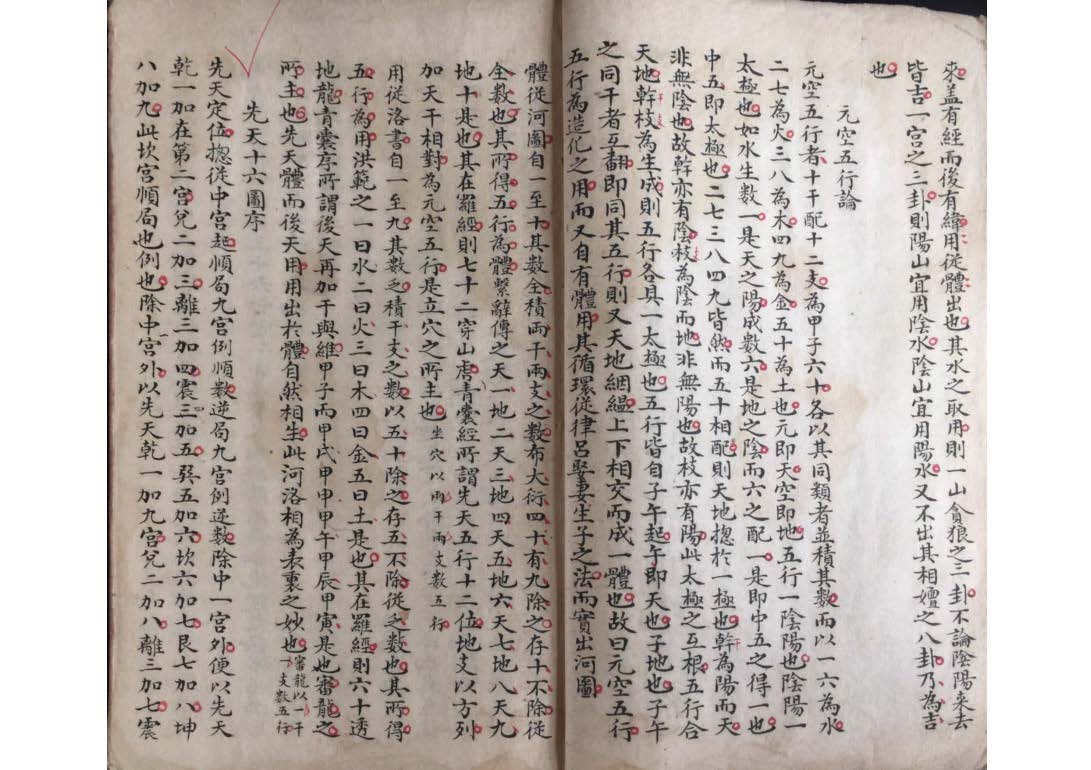 來盖有經而後有緯用從體出也其水之取用則一山貪狼之三卦不論陰陽來去
皆吉一宮之三卦則陽山宜用陰水陰山宜用陽水又不出其相嬗之八卦乃為吉
也
元空五行論
元空五行者十干配十二支為甲子六十各以其同類者並積其數而以一六為水
二七為火三八為木四九為金五十為土也元即天空即地五行一陰陽也陰陽一
太極也如水生數一是天之陽成數六是地之陰而六之配一是即中五之得一也
中五即太極也二七三八四九皆然而五十相配則天地揔於一極也幹為陽而天
非無陰也故幹亦有陰枝為陰而地非無陽也故枝亦有陽此太極之互根五行合
天地幹枝為生成則五行各具一太極也五行皆自子午起午即天也子地也子午
之同干者互翻即同其五行則又天地絪縕上下相交而成一體也故曰元空五行
五行為造化之用而又自有體用其循環從律呂娶妻生子之法而實出河圖
體從河圖自一至十其數全積兩干兩支之數布大衍四十有九除之存十不除從
全數也其所得五行為體繫辭傳之天一地二天三地四天五地六天七地八天九
地十是也其在羅經則七十二穿山虎青囊經所謂先天五行十二位地支以方列
加天干相對為元空五行是立穴之所主也坐穴以兩干兩支數五行
用從洛書自一至九其數之積干支之數以五十除之存五不除從之數也其所得
五行為用洪範之一曰水二曰火三曰木四曰金五曰土是也其在羅經則六十透
地龍青囊序所謂後天再加干與維甲子而甲戌甲申甲午甲辰甲寅是也審龍之
所主也先天體而後天用用出於體自然相生此河洛相為表裏之妙也審龍以一干一支數五行
先天十六圖序
先天定位揔從中宮起順局九宮例順數逆局九宮例逆數除中一宮外便以先天
乾一加在第二宮兌二加三離三加四震三加五巽五加六坎六加七艮七加八坤
八加九此坎宮順局也例也除中宮外以先天乾一加九宮兌二加八離三加七震